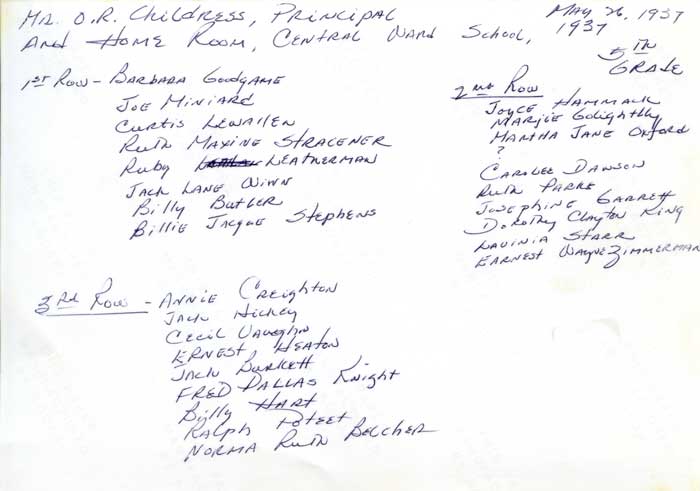 Mr. O.R. Childress, Principal
And Home Room, Central Ward School,
May 26, 1937
1937
5th
Grade
1st Row - Barbara Goodgame
Joe Miniard
Curtis Lewallen
Ruth Maxine Stracener
Ruby Leatherman
Jack Lane Winn
Billy Butler
Billie Jacque Stephens
2nd Row
Joyce Hammack
Marjie Golightly
Martha Jane Oxford
?
Carolee Dawson
Ruth Parke
Josephine Garrett
Dorothy Clayton King
Lavinia Starr
Earnest Wayne Zimmerman
3rd Row - Annie Creighton
Jack Hickey
Cecil Vaughn
Ernest Heaton
Jack Burkett
Fred Dallas Knight
Billy Hart
Ralph Poteet
Norma Ruth Belcher